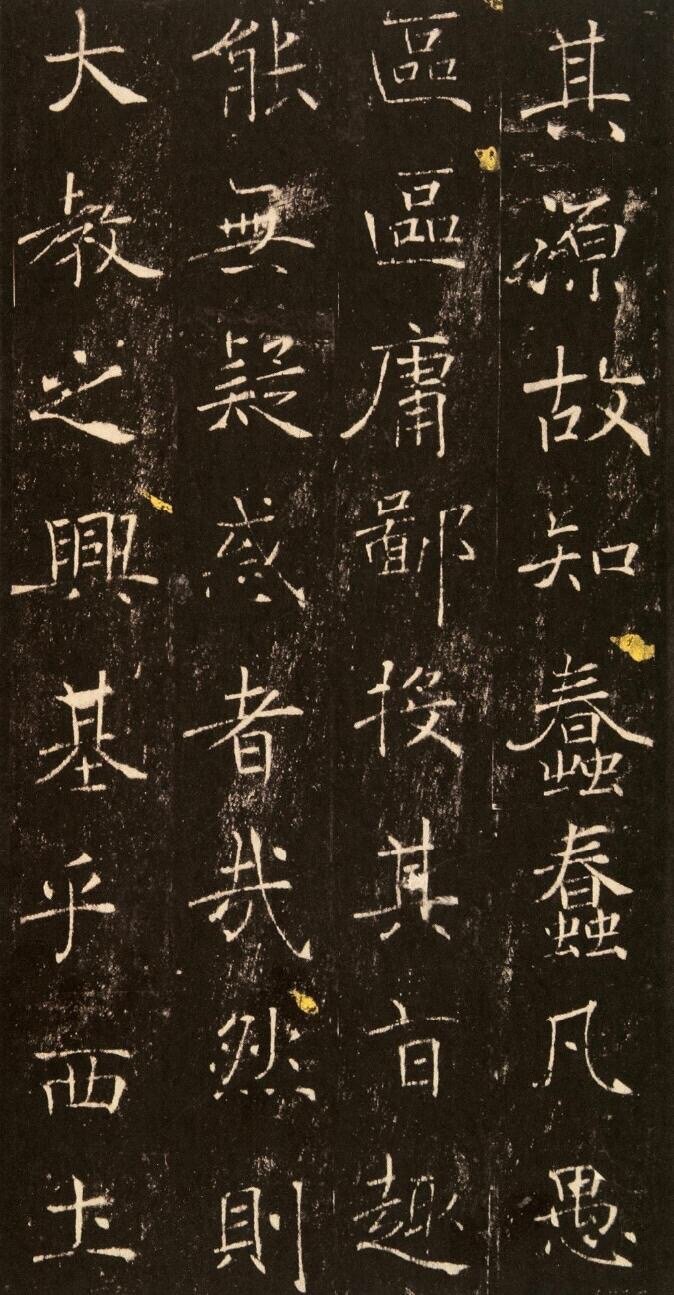 其源故知蠢蠢凡愚
區區庸鄙投其旨趣
能無疑惑者哉然則
大教之興基乎西土